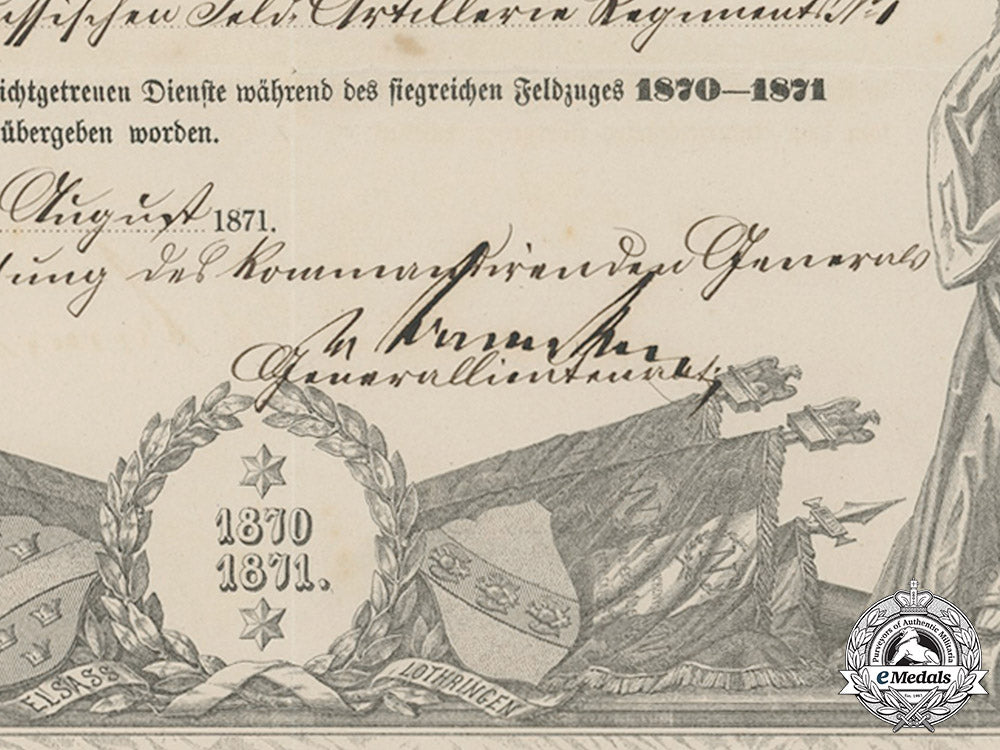 ussischen Feld. Artillerie Regiments No 1
ichtgetreuen Dienste während des siegreichen Feldzuges 1870—1871
übergeben worden.
August 1871.
tung des kommandirenden Generals
Generallieutenant
1870
1871.
ELSASS
LOTHRINGEN
Purveyors of Authentic Militaria
eMedals